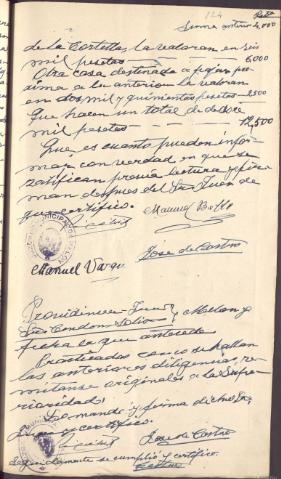 124
Suma anterior 4,000
de la Cortella, la valoran en seis
mil pesetas 6,000
Otra casa destinada a pajar pró-
xima a la anterior la valoran
en dos mil y quinientas pesetas 2500
Que hacen un total de doce
mil pesetas 12,500
Que es cuanto pueden infor-
mar con verdad en que se
ratifican previa lectura y fir-
man despues del Sr. Juez de
que certifico.
Manuel
José de Castro
Manuel Varg
Providencia Juez
Sr. Melon y
fecha la que antecede
Practicadas como se hallan
las anteriores diligencias, re-
mitanse originales a la Supe-
rioridad.
Lo mandó y firma dicho Sr.
de que certifico.
José de Castro
Seguidamente se cumplió y certifico.
Castro